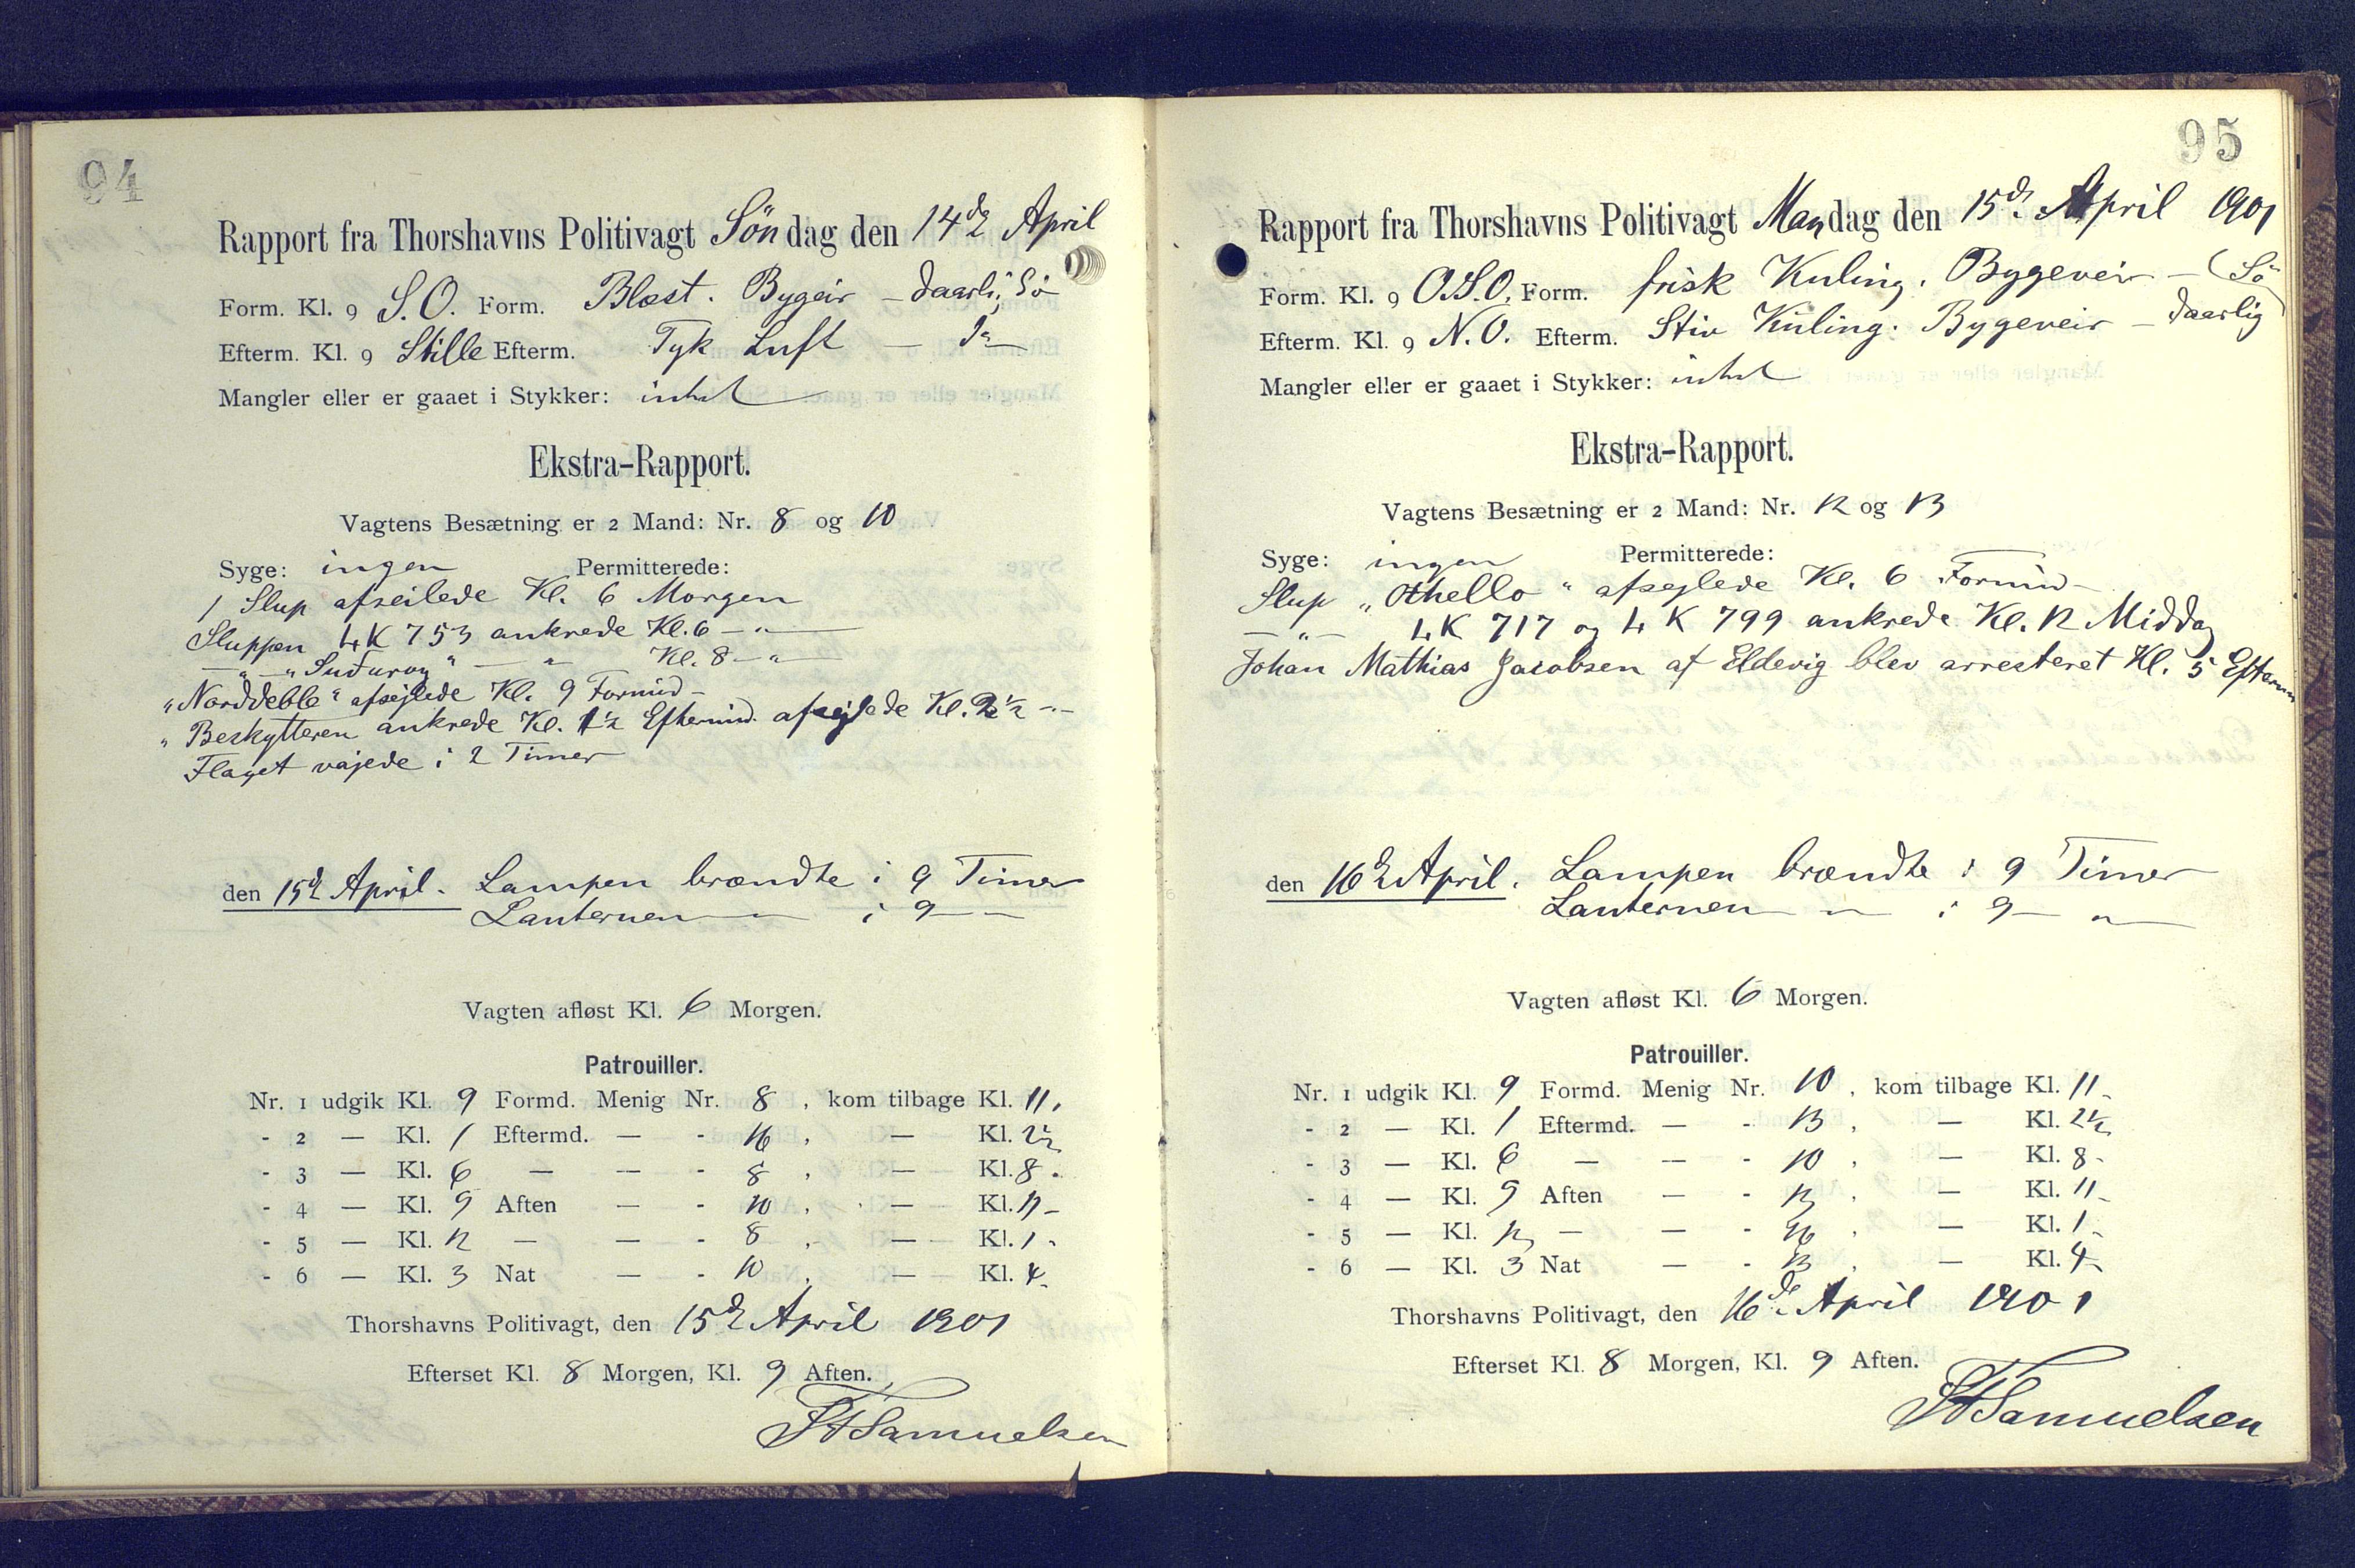 94
Rapport fra Thorshavns Politivagt Søndag den 14de April
Form. Kl. 9 S.O. Form. Blæst. Bygeir - daarlig Sö
Efterm. Kl. 9 Stille Efterm. Tyk Luft — do
Mangler eller er gaaet i Stykker: intet
Ekstra-Rapport.
Vagtens Besætning er 2 Mand: Nr. 8 og 10
Syge: ingen Permitterede:
1 Slup afseilede Kl. 6 Morgen
Sluppen LK 753 ankrede Kl. 6 — " —
— " — "Suduroy" — " — Kl. 8 — " —
"Norddeble" afsejlede Kl. 9 Formid -
"Beskytteren ankrede Kl. 1½ Eftermid. afsejlede Kl. 2½ - " -
Flaget vajede i 2 Timer
den 15de April. Lampen brændte i 9 Timer
Lanternen — " — i 9 — " —
Vagten afløst Kl. 6 Morgen.
Patrouiller.
Nr. 1 udgik Kl. 9 Formd. Menig Nr. 8, kom tilbage Kl. 11.
- 2 — Kl. 1 Eftermd. — - 16, — Kl. 2½
- 3 — Kl. 6 — — - 8, — Kl. 8.
- 4 — Kl. 9 Aften — - 10, — Kl. 11 -
- 5 — Kl. 12 — — - 8, — Kl. 1 -
- 6 — Kl. 3 Nat — - 10, — Kl. 4.
Thorshavns Politivagt, den 15de April 1901
Efterset Kl. 8 Morgen, Kl. 9 Aften.
Samuelsen
95
Rapport fra Thorshavns Politivagt Mandag den 15de April 1901
Form. Kl. 9 O.S.O. Form. frisk Kuling. Bygeveir - (Sö
Efterm. Kl. 9 N.O. Efterm. Stiv Kuling. Bygeveir - daarlig
Mangler eller er gaaet i Stykker: intet
Ekstra-Rapport.
Vagtens Besætning er 2 Mand: Nr. 12 og 13
Syge: ingen Permitterede:
Slup "Othello" afsejlede Kl. 6 Formid -
— " — LK 717 og LK 799 ankrede Kl. 12 Middag
Johan Mathias Jacobsen af Eldevig blev arresteret Kl. 5 Efterm
den 16de April. Lampen brændte i 9 Timer
Lanternen — " — i 9 — " —
Vagten afløst Kl. 6 Morgen.
Patrouiller.
Nr. 1 udgik Kl. 9 Formd. Menig Nr. 10, kom tilbage Kl. 11 -
- 2 — Kl. 1 Eftermd. — - 13, — Kl. 2½
- 3 — Kl. 6 — — - 10, — Kl. 8 -
- 4 — Kl. 9 Aften — - 12, — Kl. 11 -
- 5 — Kl. 12 — — - 16, — Kl. 1 -
- 6 — Kl. 3 Nat — - 13, — Kl. 4 -
Thorshavns Politivagt, den 16de April 1901
Efterset Kl. 8 Morgen, Kl. 9 Aften.
Samuelsen